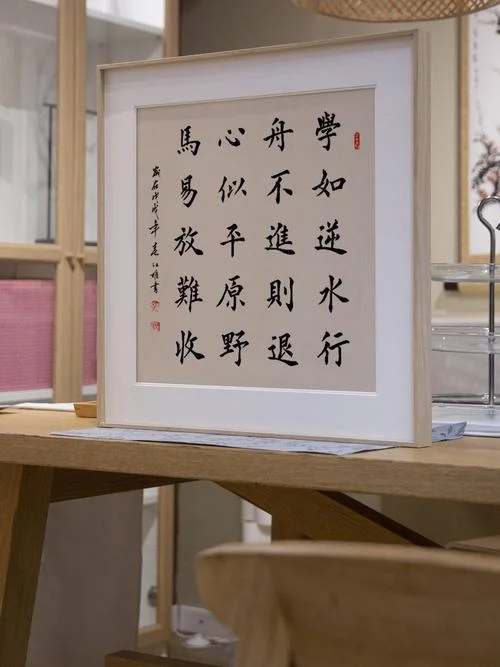 學如逆水行
舟不進則退
心似平原野
馬易放難收
歲在戊戌年